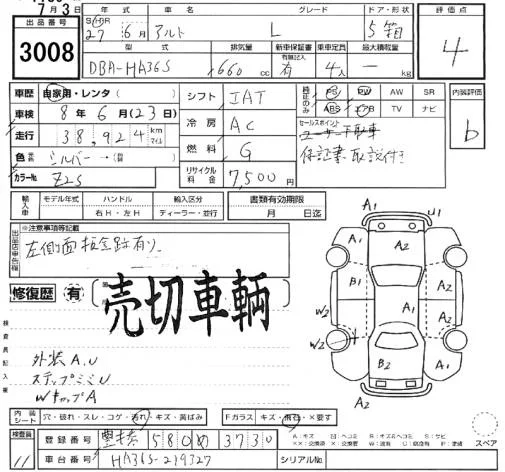 7月3日
出品番号
3008
年式 グレード ドア・形状 評価点
S・H・R
27年 6月 アルト L 5箱
4
型式 排気量 新車保証書 乗車定員 最大積載量
DBA-HA36S 660cc 有 4人 — kg
車歴 自家用・レンタ( )
車検 8年6月(23日)
走行 38,924 km マイル
色 シルバー
カラーNo. Z2S
シフト IAT
冷房 AC
燃料 G
リサイクル料金 7,500円
純正のみ PS PW AW SR
ABS エアB TV ナビ
セールスポイント
ユーザー下取車
保証書取説付き
内装評価
b
輸入車 モデル年式 ハンドル 輸入区分 書類有効期限
右H・左H ディーラー・並行 月 日迄
※注意事項等記載
出品店申告欄
左側面板金跡有り
修復歴 有
売切車輌
検査員記入欄
外装A.U
ステップミミU
WキャップA
A1 U1
A1 A2
A2
B1 A1 A2
W2
W2
A1 B2 A2
A1
スペア
内装シート 穴・破れ・スレ・コゲ・汚れ・キズ・黄ばみ
Fガラス キズ・飛石・×要す
検査員
11
登録番号 豊橋 580 め 3730
車台番号 HA36S-219327
シリアルNo.